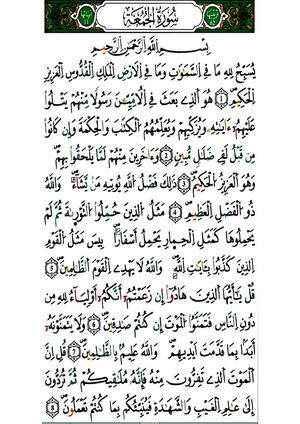 سُورَةُ الْجُمُعَةِ
بِسْمِ اللَّهِ الرَّحْمَٰنِ الرَّحِيمِ
يُسَبِّحُ لِلَّهِ مَا فِي السَّمَٰوَٰتِ وَمَا فِي الْأَرْضِ الْمَلِكِ الْقُدُّوسِ الْعَزِيزِ
الْحَكِيمِ ۝١ هُوَ الَّذِي بَعَثَ فِي الْأُمِّيِّينَ رَسُولًا مِنْهُمْ يَتْلُوا
عَلَيْهِمْ ءَايَٰتِهِ وَيُزَكِّيهِمْ وَيُعَلِّمُهُمُ الْكِتَٰبَ وَالْحِكْمَةَ وَإِن كَانُوا
مِن قَبْلُ لَفِي ضَلَٰلٍ مُّبِينٍ ۝٢ وَءَاخَرِينَ مِنْهُمْ لَمَّا يَلْحَقُوا بِهِمْ
وَهُوَ الْعَزِيزُ الْحَكِيمُ ۝٣ ذَٰلِكَ فَضْلُ اللَّهِ يُؤْتِيهِ مَن يَشَآءُ وَاللَّهُ
ذُو الْفَضْلِ الْعَظِيمِ ۝٤ مَثَلُ الَّذِينَ حُمِّلُوا التَّوْرَىٰةَ ثُمَّ لَمْ
يَحْمِلُوهَا كَمَثَلِ الْحِمَارِ يَحْمِلُ أَسْفَارًا بِئْسَ مَثَلُ الْقَوْمِ
الَّذِينَ كَذَّبُوا بِـَٔايَٰتِ اللَّهِ وَاللَّهُ لَا يَهْدِي الْقَوْمَ الظَّٰلِمِينَ ۝٥
قُلْ يَٰٓأَيُّهَا الَّذِينَ هَادُوٓا إِن زَعَمْتُمْ أَنَّكُمْ أَوْلِيَآءُ لِلَّهِ مِن
دُونِ النَّاسِ فَتَمَنَّوُا الْمَوْتَ إِن كُنتُمْ صَٰدِقِينَ ۝٦ وَلَا يَتَمَنَّوْنَهُۥٓ
أَبَدًۢا بِمَا قَدَّمَتْ أَيْدِيهِمْ وَاللَّهُ عَلِيمٌۢ بِالظَّٰلِمِينَ ۝٧ قُلْ إِنَّ
الْمَوْتَ الَّذِي تَفِرُّونَ مِنْهُ فَإِنَّهُۥ مُلَٰقِيكُمْ ثُمَّ تُرَدُّونَ
إِلَىٰ عَٰلِمِ الْغَيْبِ وَالشَّهَٰدَةِ فَيُنَبِّئُكُم بِمَا كُنتُمْ تَعْمَلُونَ ۝٨